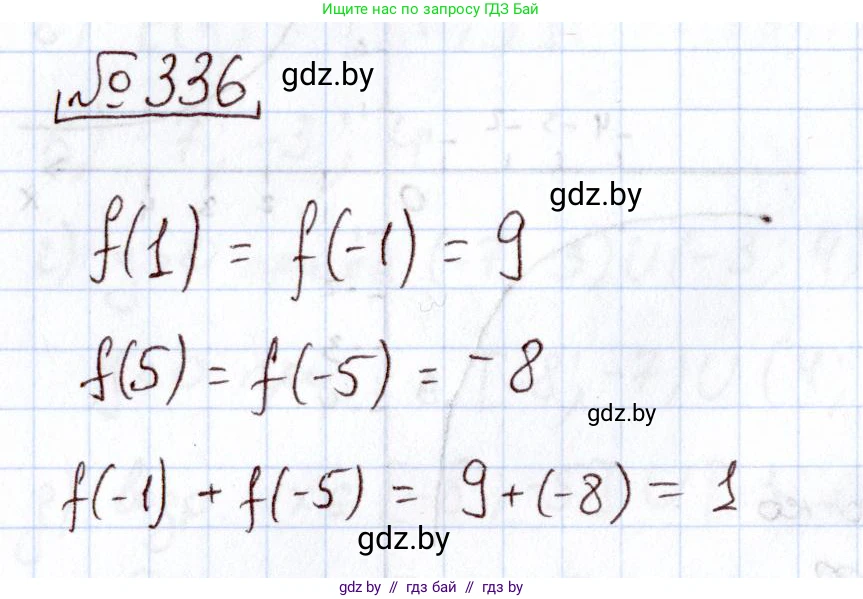 Ищите нас по запросу ГДЗ Бай
№ 336 gdz.by
gdz.by
f(1) = f(-1) = 9
f(5) = f(-5) = -8
gdz.by
f(-1) + f(-5) = 9 + (-8) = 1
gdz.by
gdz by // гдз бай // gdz by